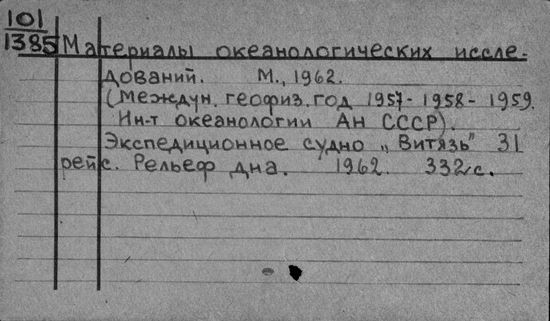 101
1385 Материалы океанологических иссле-
дований. М., 1962.
(Междун. геофиз. год 1957-1958-1959.
Ин-т океанологии Ан СССР).
Экспедиционное судно „Витязь" 31
рейс. Рельеф дна. 1962. 332 с.